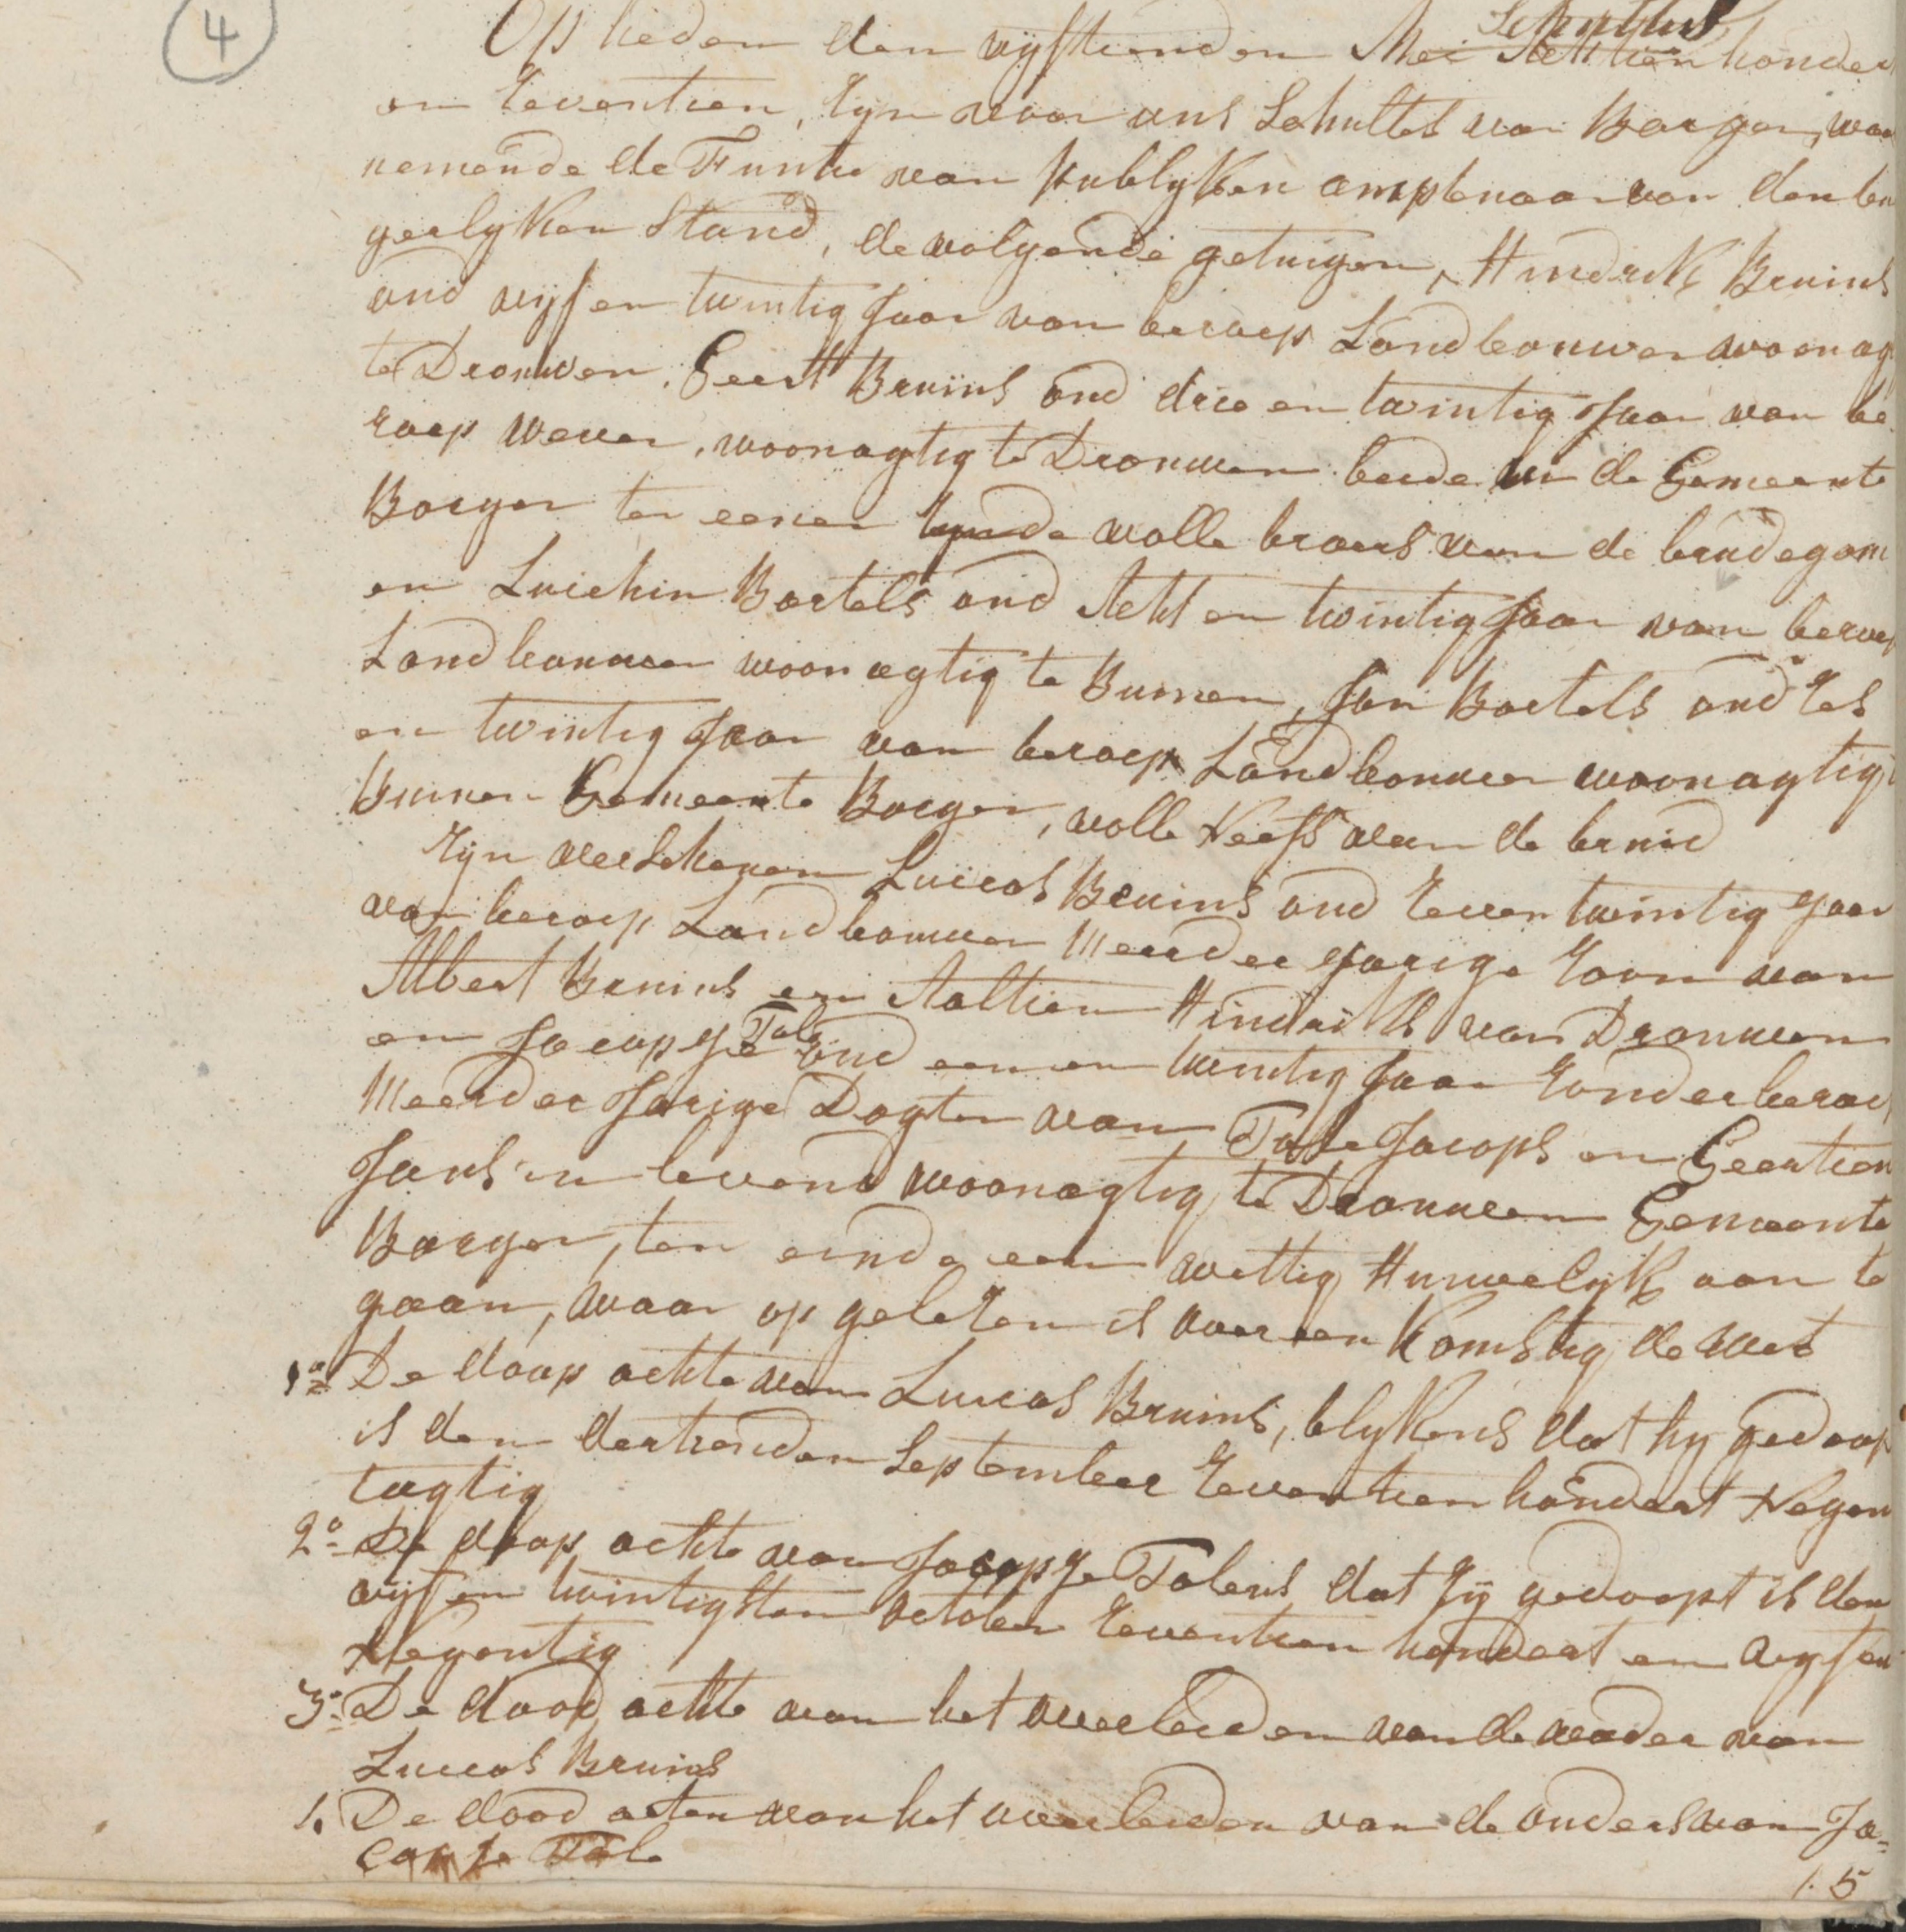 4
Schultus
Op heden den vyftienden Mei Acttien honder
en Zeventien, Zyn voor ons Schultes van Borger, waar
nemende de Funtie van publyken amptenaar van den bur
gerlyken Stand, de volgende getuigen, Hindrik Bruins
oud vijf en twintig Jaar van beroep Landbouwer woonag
te Drouwen, Geert Bruins oud drie en twintig Jaar van be
roep wever, woonagtig te Drouwen beide in de Gemeente
Borger ter eener zynde volle broers van de brudegom
en Luichin Bartels oud Acht en twintig Jaar van beroep
Landbouwer woonagtig te Buinen, Jan Bartels oud Zes
en twintig Jaar van beroep Landbouwer woonagtig
Buinen Gemeente Borger, volle Neefs van de bruid
Zyn verschenen Lucas Bruins oud Zeven twintig Jaar
van beroep Landbouwer Meerder Jarige Zoon van
Albert Bruins en Aaltien Hindriks van Drouwen
en Jacopje Tale oud een en twintig Jaar Zonder beroep
Meerder Jarige Dogter van Tale Jacops en Geertien
Jans in levend woonagtig te Drouwen Gemeente
Borger, ten einde een wettig Huuwelijk aan te
gaan, waar op geleten is overeen Komstig de wet
1o De doop ackte van Lucas Bruins, blykens dat hy gedoop
is den dertienden September Zeventien hondert Negen
tagtig
2o De doop ackte van Jacopje Talens dat Zij gedoopt is den
vyf en twintigsten October Zeventien hondert en vyf en
Negentig
3o De dood ackte van het overleiden van de vader van
Lucas Bruins
De dood acten van het overleiden van de ouders van Ja=
copje Tale
1.5